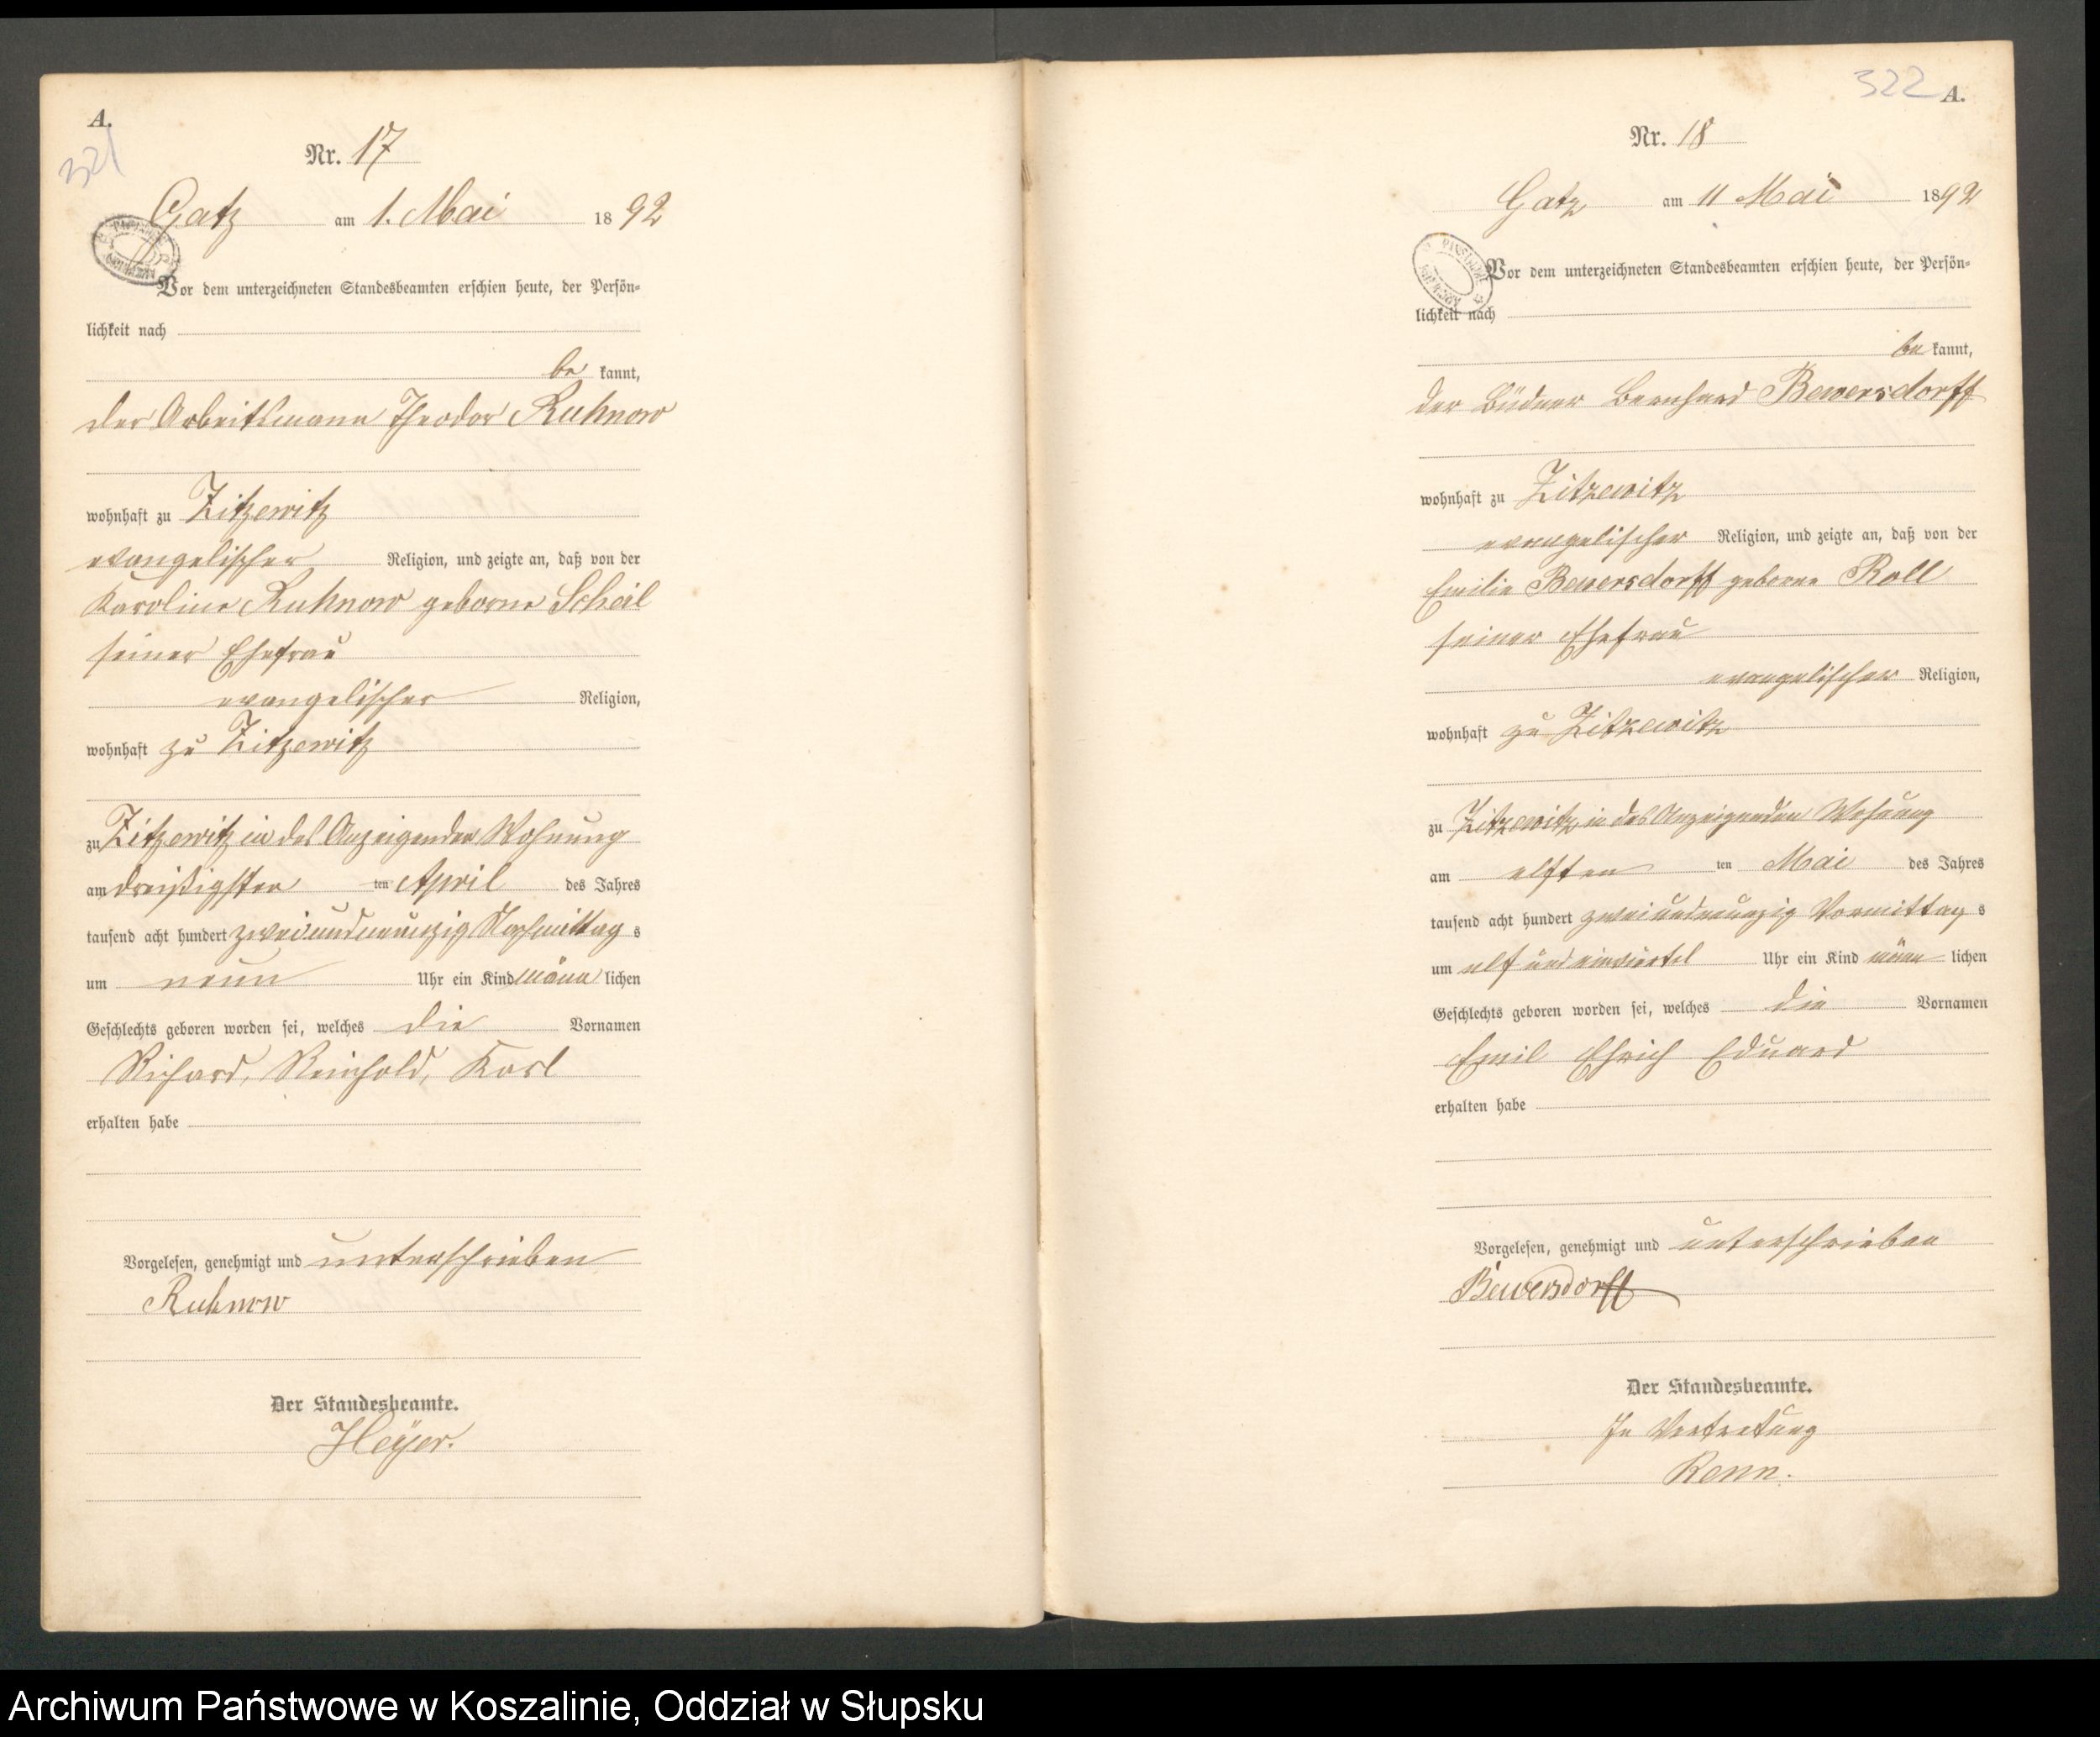 A.
321
Nr. 17
Gatz am 1. Mai 1892
Vor dem unterzeichneten Standesbeamten erschien heute, der Persön-
lichkeit nach
be kannt,
der Arbeitsmann Theodor Ruhnow
wohnhaft zu Zitzewitz
evangelischer Religion, und zeigte an, daß von der
Karoline Ruhnow geborne Scheil
seiner Ehefrau
evangelischer Religion,
wohnhaft zu Zitzewitz
zu Zitzewitz in des Anzeigenden Wohnung
am dreißigsten ten April des Jahres
tausend acht hundert zweiundneunzig Nachmittag s
um neun Uhr ein Kind männ lichen
Geschlechts geboren worden sei, welches die Vornamen
Richard, Reinhold, Karl
erhalten habe
Vorgelesen, genehmigt und unterschrieben
Ruhnow
Der Standesbeamte.
Heyer.
322 A.
Nr. 18
Gatz am 11 Mai 1892
Vor dem unterzeichneten Standesbeamten erschien heute, der Persön-
lichkeit nach
be kannt,
der Büdner Bernhard Bewersdorff
wohnhaft zu Zitzewitz
evangelischer Religion, und zeigte an, daß von der
Emilie Bewersdorff geborne Roll
seiner Ehefrau
evangelischer Religion,
wohnhaft zu Zitzewitz
zu Zitzewitz in des Anzeigenden Wohnung
am elften ten Mai des Jahres
tausend acht hundert zweiundneunzig Vormittag s
um elf und einviertel Uhr ein Kind männ lichen
Geschlechts geboren worden sei, welches die Vornamen
Emil Ehrich Eduard
erhalten habe
Vorgelesen, genehmigt und unterschrieben
Bewersdorff
Der Standesbeamte.
In Vertretung
Renn.
Archiwum Państwowe w Koszalinie, Oddział w Słupsku